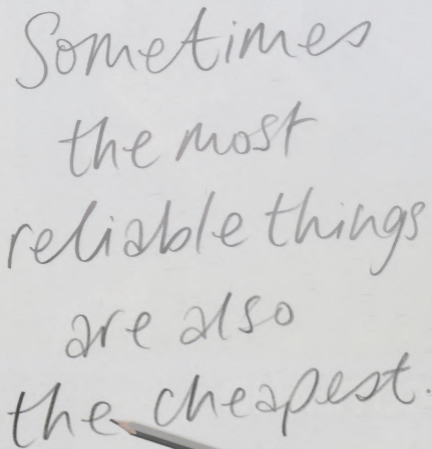 Sometimes
the most
reliable things
are also
the cheapest.